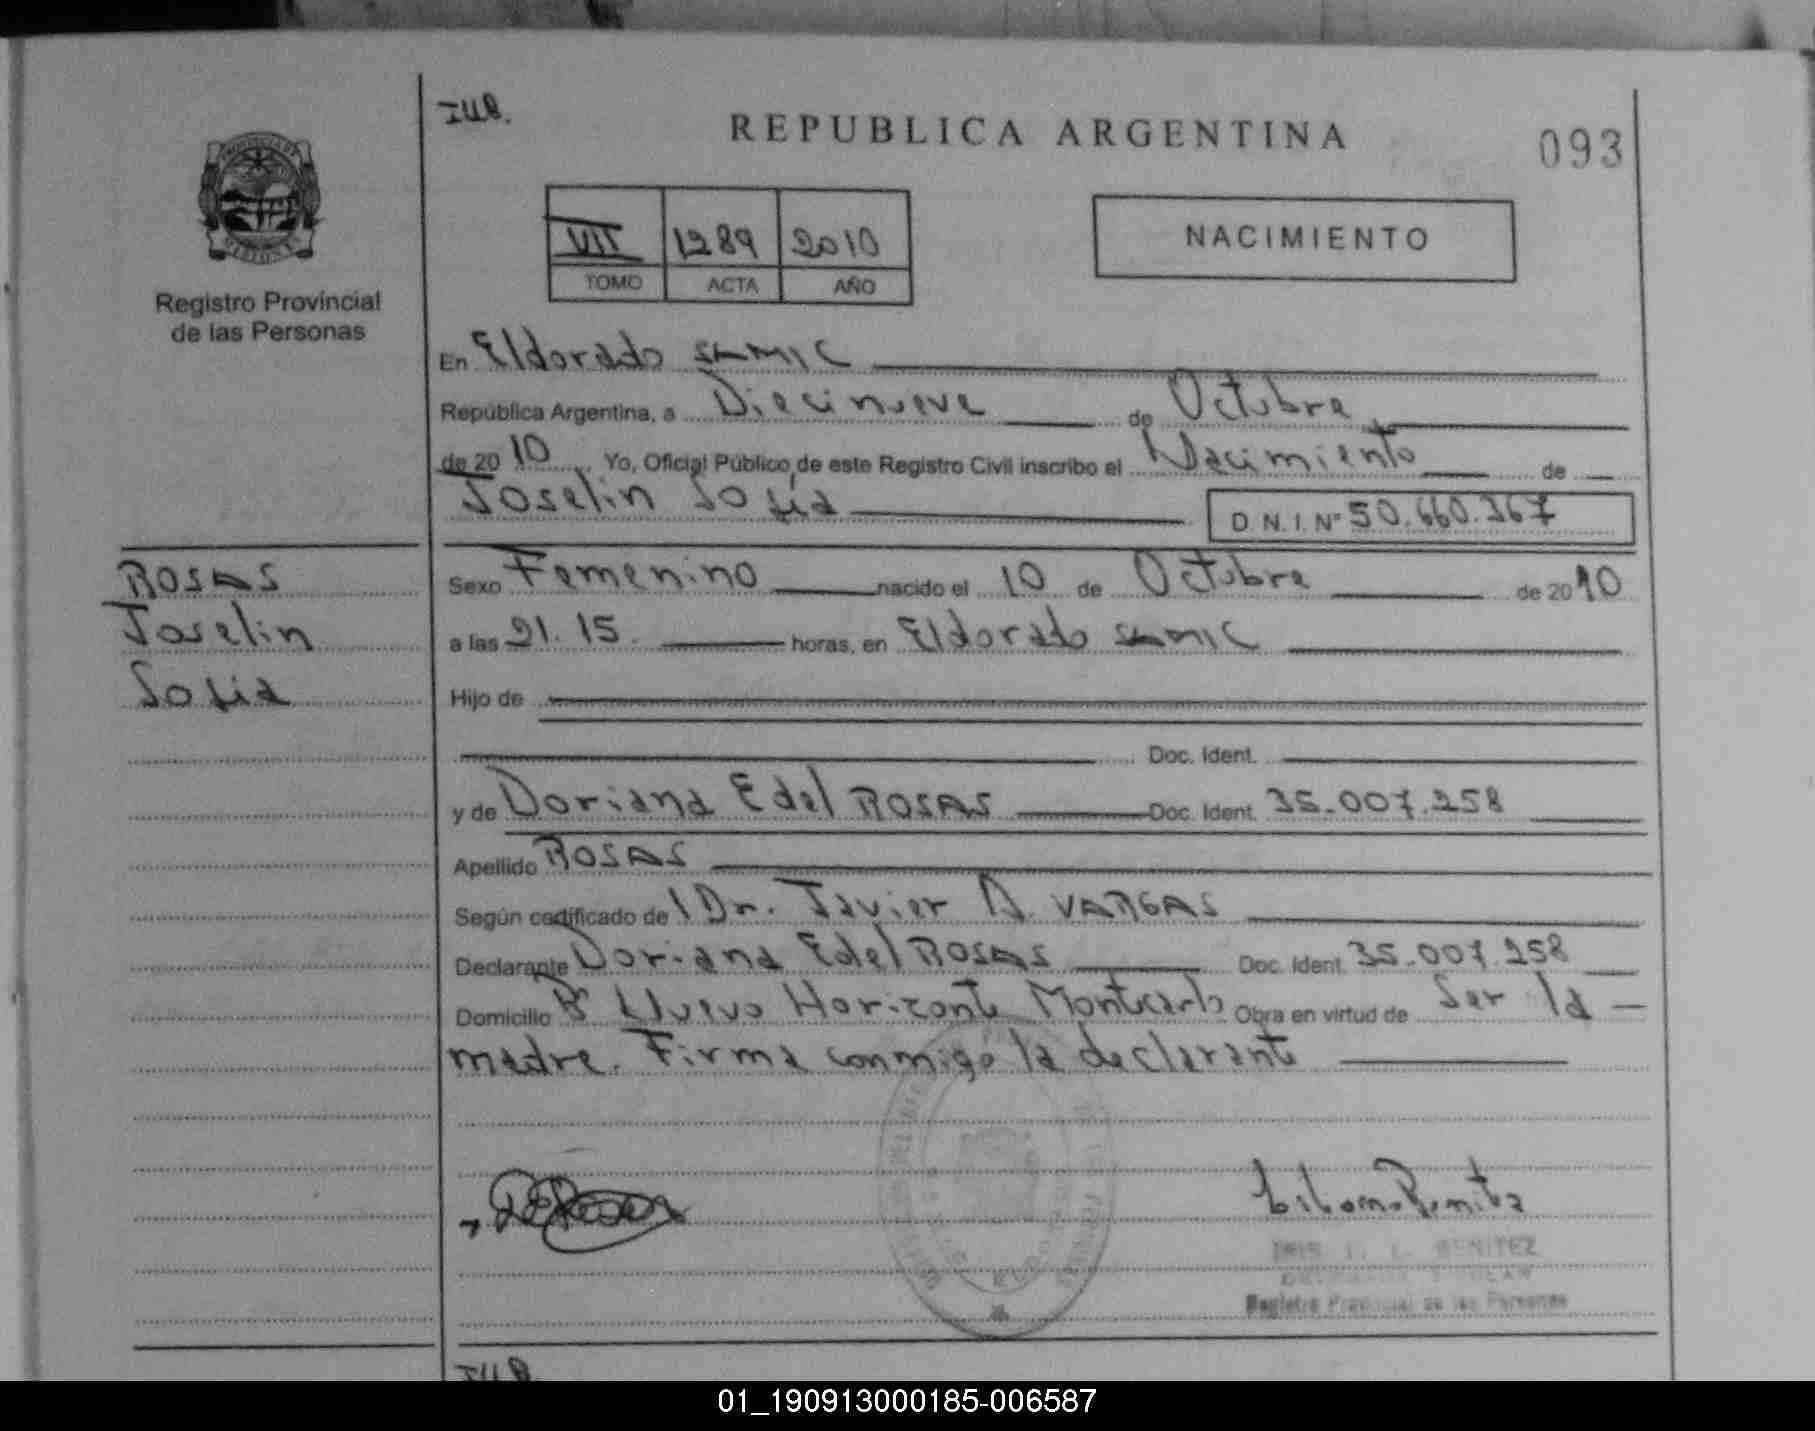 I.U.B.
REPUBLICA ARGENTINA
093
PROVINCIA DE MISIONES
Registro Provincial
de las Personas
VII 1289 2010
TOMO ACTA AÑO
NACIMIENTO
En Eldorado SAMIC
República Argentina, a Diecinueve de Octubre
de 2010 Yo, Oficial Público de este Registro Civil inscribo el Nacimiento de
Joselin Sofia D.N.I. Nº 50.660.367
ROSAS
Joselin
Sofia
Sexo Femenino nacido el 10 de Octubre de 2010
a las 21.15 horas, en Eldorado SAMIC
Hijo de
Doc. Ident.
y de Doriana Edel ROSAS Doc. Ident. 35.007.258
Apellido ROSAS
Según certificado de l Dr. Javier A. VARGAS
Declarante Doriana Edel ROSAS Doc. Ident. 35.007.258
Domicilio Bº Nuevo Horizonte Montecarlo Obra en virtud de Ser la
madre. Firma conmigo la declarante
IRIS BENITEZ
Registro Provincial de las Personas
I.U.B.
01_190913000185-006587